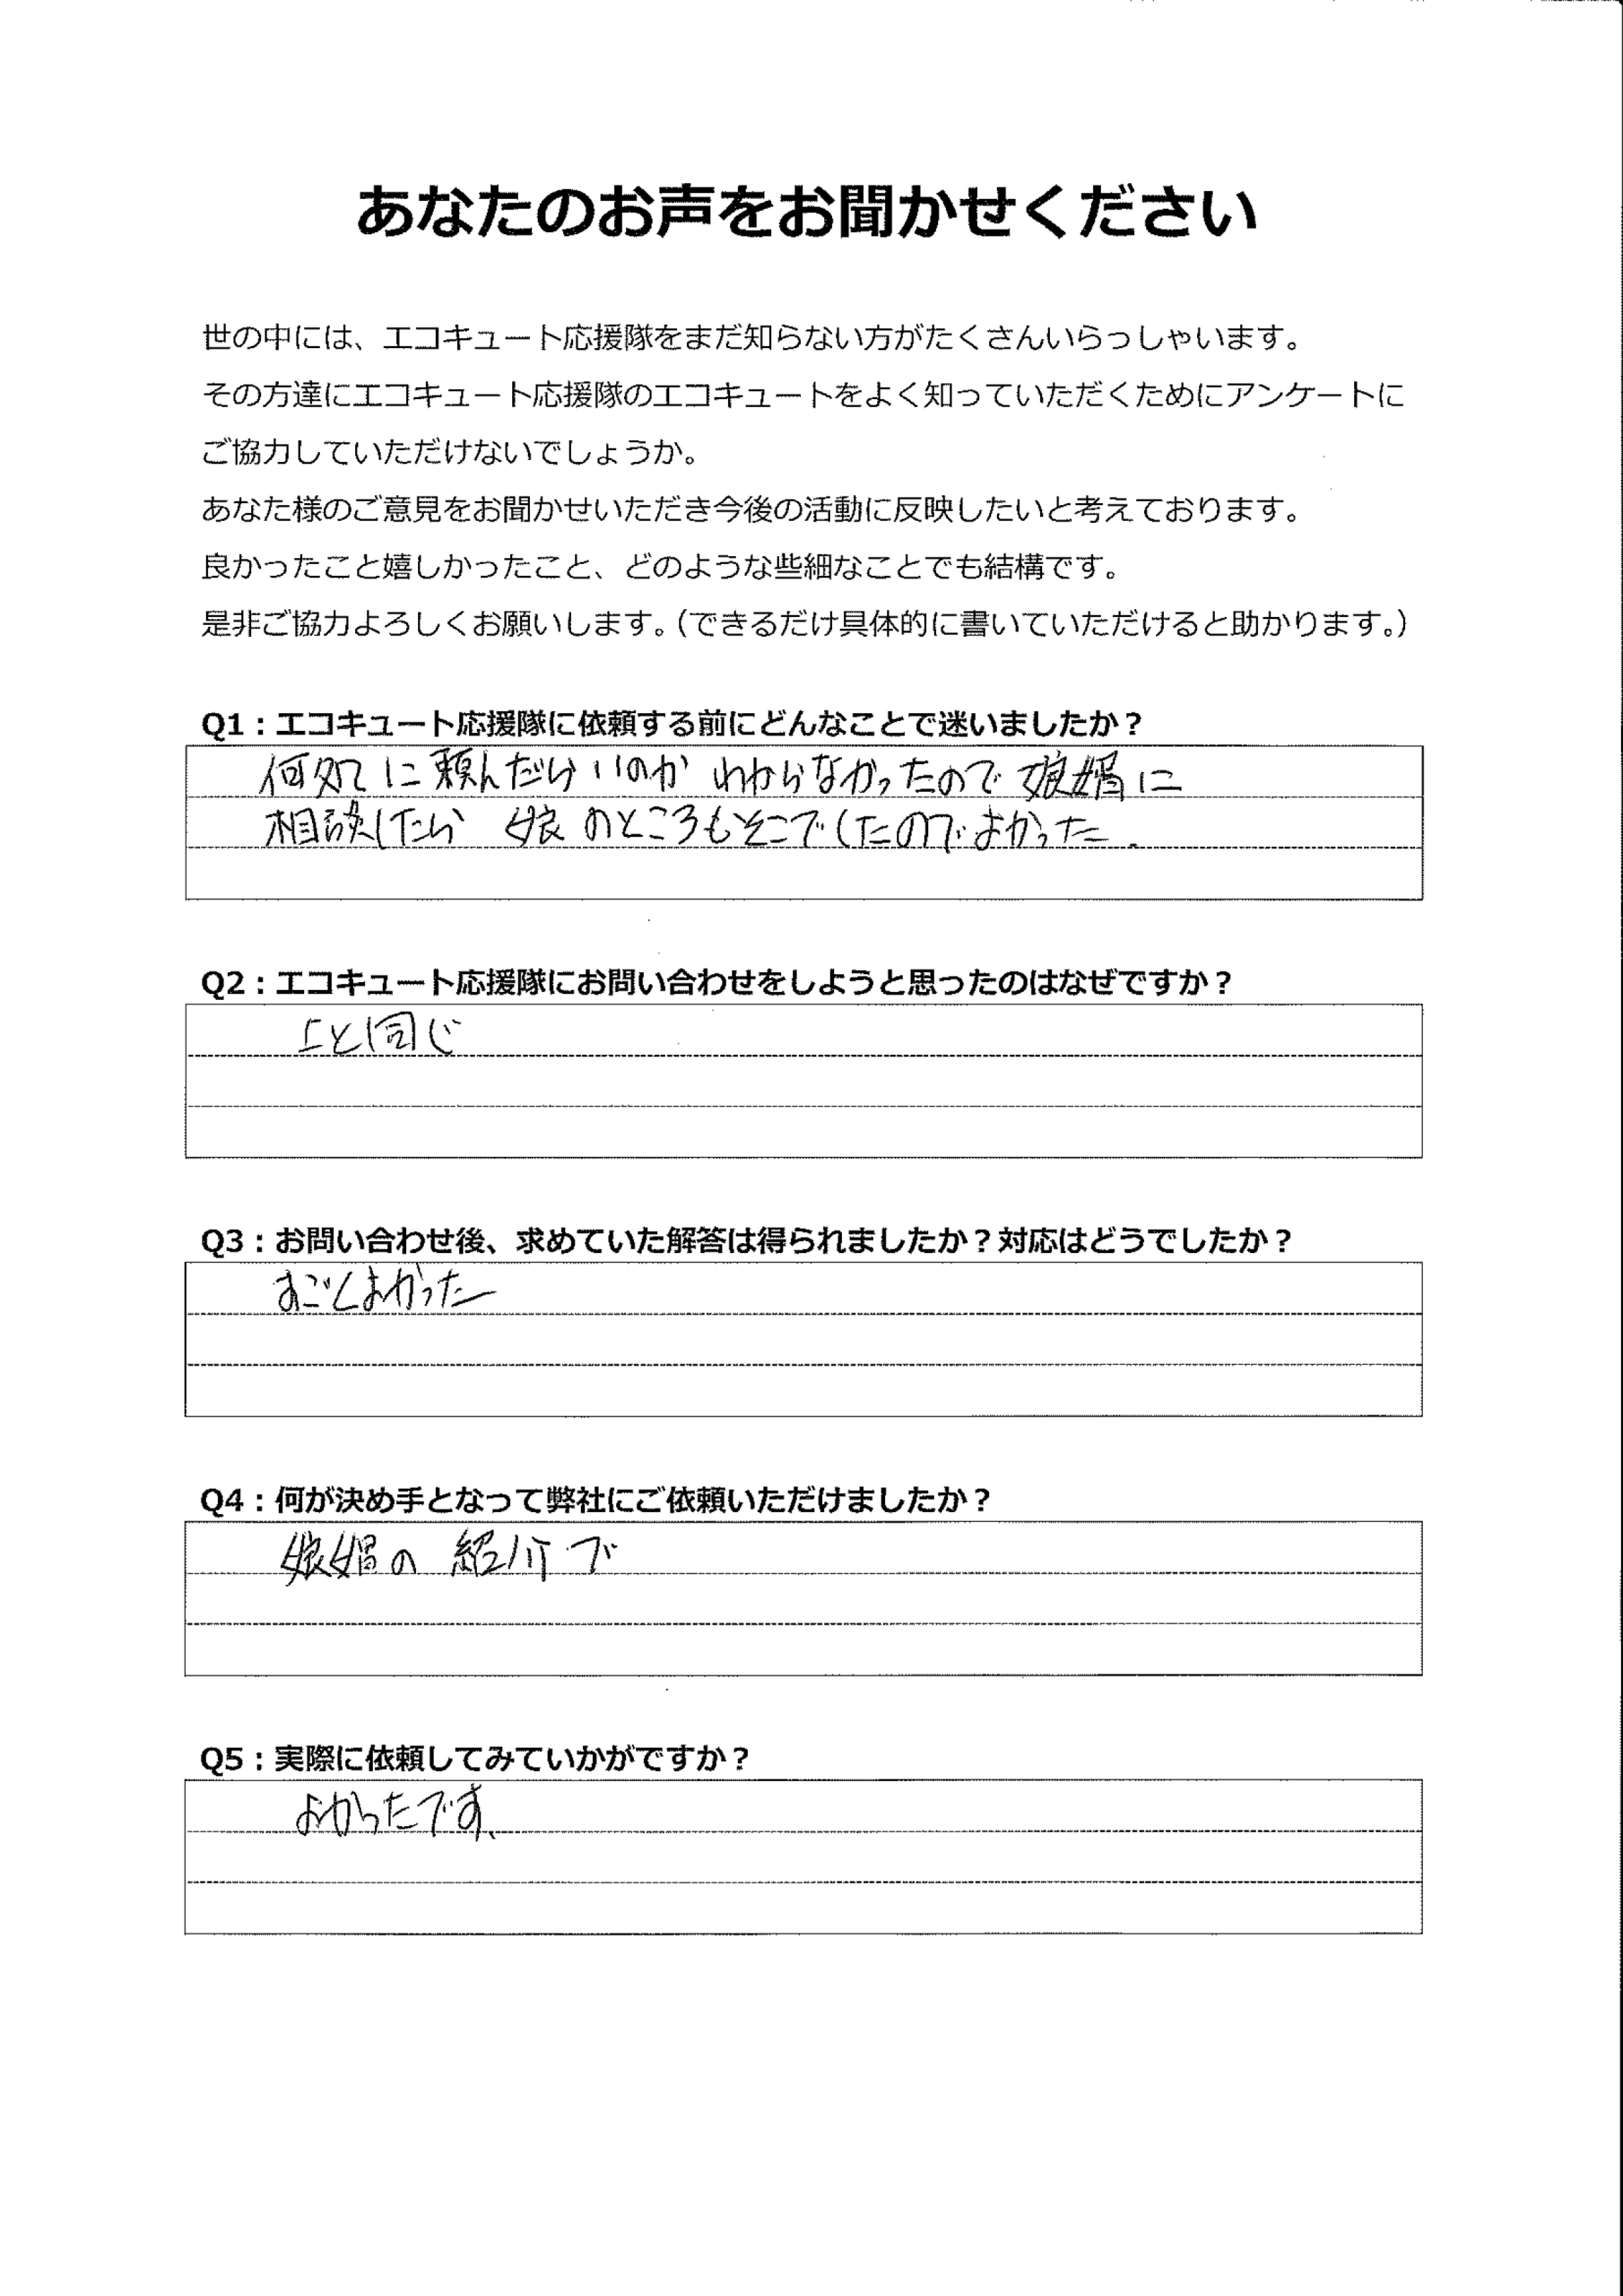 あなたのお声をお聞かせください
世の中には、エコキュート応援隊をまだ知らない方がたくさんいらっしゃいます。
その方達にエコキュート応援隊のエコキュートをよく知っていただくためにアンケートに
ご協力していただけないでしょうか。
あなた様のご意見をお聞かせいただき今後の活動に反映したいと考えております。
良かったこと嬉しかったこと、どのような些細なことでも結構です。
是非ご協力よろしくお願いします。（できるだけ具体的に書いていただけると助かります。）
Q1：エコキュート応援隊に依頼する前にどんなことで迷いましたか？
何処に頼んだらいいのか わからなかったので 娘婿に
相談したら 娘のところもそこでしたのでよかった.
Q2：エコキュート応援隊にお問い合わせをしようと思ったのはなぜですか？
上と同じ
Q3：お問い合わせ後、求めていた解答は得られましたか？対応はどうでしたか？
すごくよかった
Q4：何が決め手となって弊社にご依頼いただけましたか？
娘婿の 紹介で
Q5：実際に依頼してみていかがですか？
よかったです、